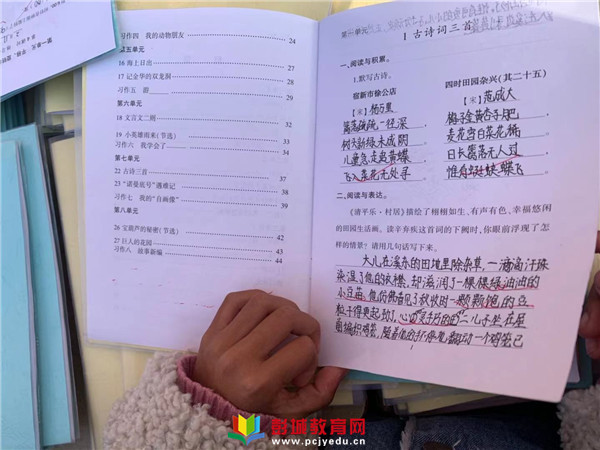 习作四 我的动物朋友 24
第五单元
16 海上日出 26
17 记金华的双龙洞 28
习作五 游____ 31
第六单元
18 文言文二则 32
19 小英雄雨来(节选) 33
习作六 我学会了____ 34
第七单元
22 古诗三首 35
23 “诺曼底号”遇难记 37
习作七 我的“自画像” 39
第八单元
26 宝葫芦的秘密(节选) 42
27 巨人的花园 43
习作八 故事新编 44
第一单元
1 古诗词三首
一、阅读与积累。
1.默写古诗。
宿新市徐公店
[宋] 杨万里
篱落疏疏一径深,
树头新绿未成阴。
儿童急走追黄蝶,
飞入菜花无处寻
四时田园杂兴(其二十五)
[宋] 范成大
梅子金黄杏子肥
麦花雪白菜花稀
日长篱落无人过
惟有蜓蛱蝶飞。
二、阅读与表达。
《清平乐·村居》描绘了栩栩如生、有声有色、幸福悠闲
的田园生活画。读辛弃疾这首词的下阕时,你眼前浮现了怎
样的情景?请用几句话写下来。
大儿在溪东的田地里除杂草,一滴滴汗珠
染湿了他的衣襟,却滋润了一棵棵绿油油的
小豆苗
一颗颗饱的豆
粒干得更起劲,心
二儿子坐在屋
前编织鸡笼,随着他的手
一个鸡笼已
磐城教育网
www.pcjyedu.cn